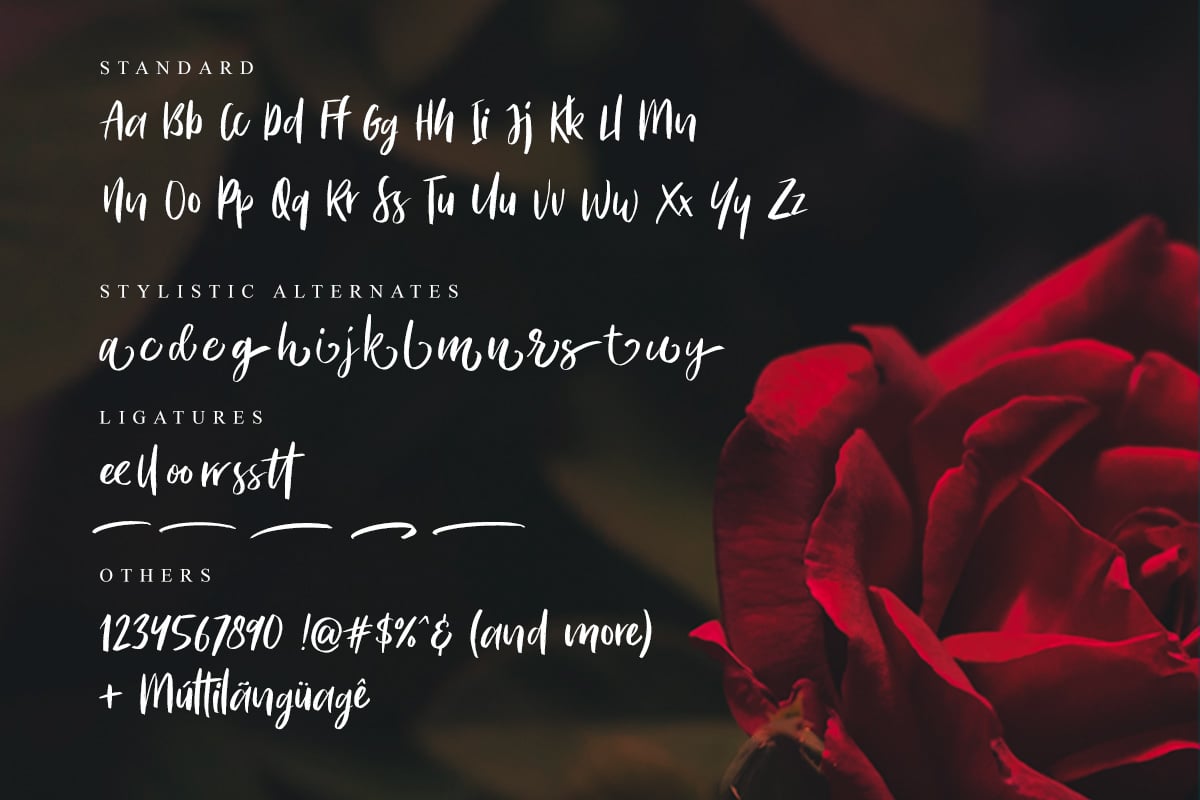 STANDARD
Aa Bb Cc Dd Ff Gg Hh Ii Jj Kk Ll Mn
Nn Oo Pp Qq Rr Ss Tu Uu Vv Ww Xx Yy Zz
STYLISTIC ALTERNATES
acdeghijklmnrstuwy
LIGATURES
ee ll oo rr ss tt
OTHERS
1234567890 !@#$%^& (and more)
+ Múttilãngüagê